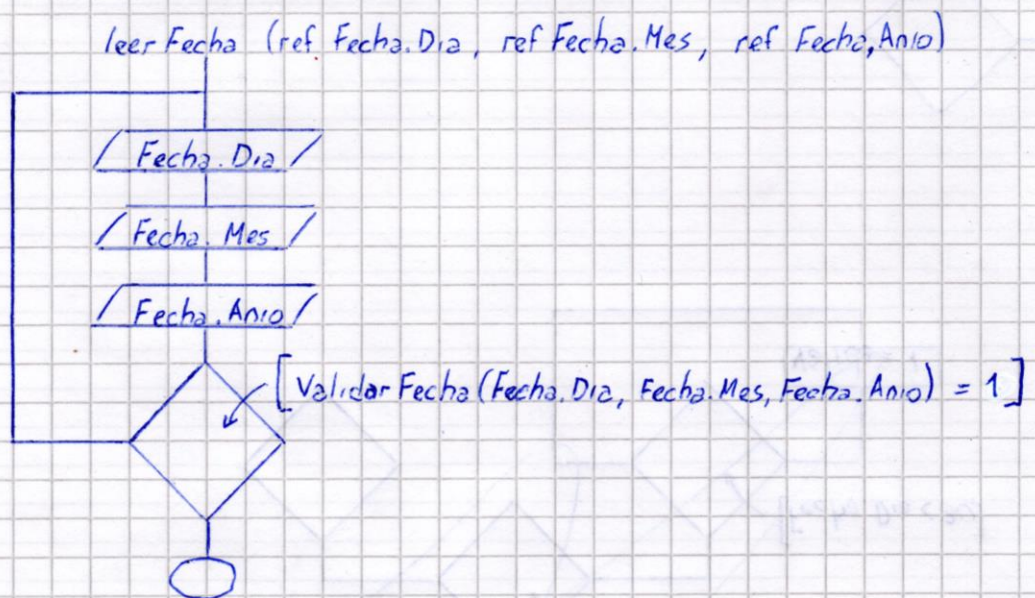 leer Fecha (ref Fecha.Dia, ref Fecha.Mes, ref Fecha,Anio)
Fecha.Dia
Fecha.Mes
Fecha.Anio
[Validar Fecha(Fecha.Dia, Fecha.Mes, Fecha.Anio) = 1]